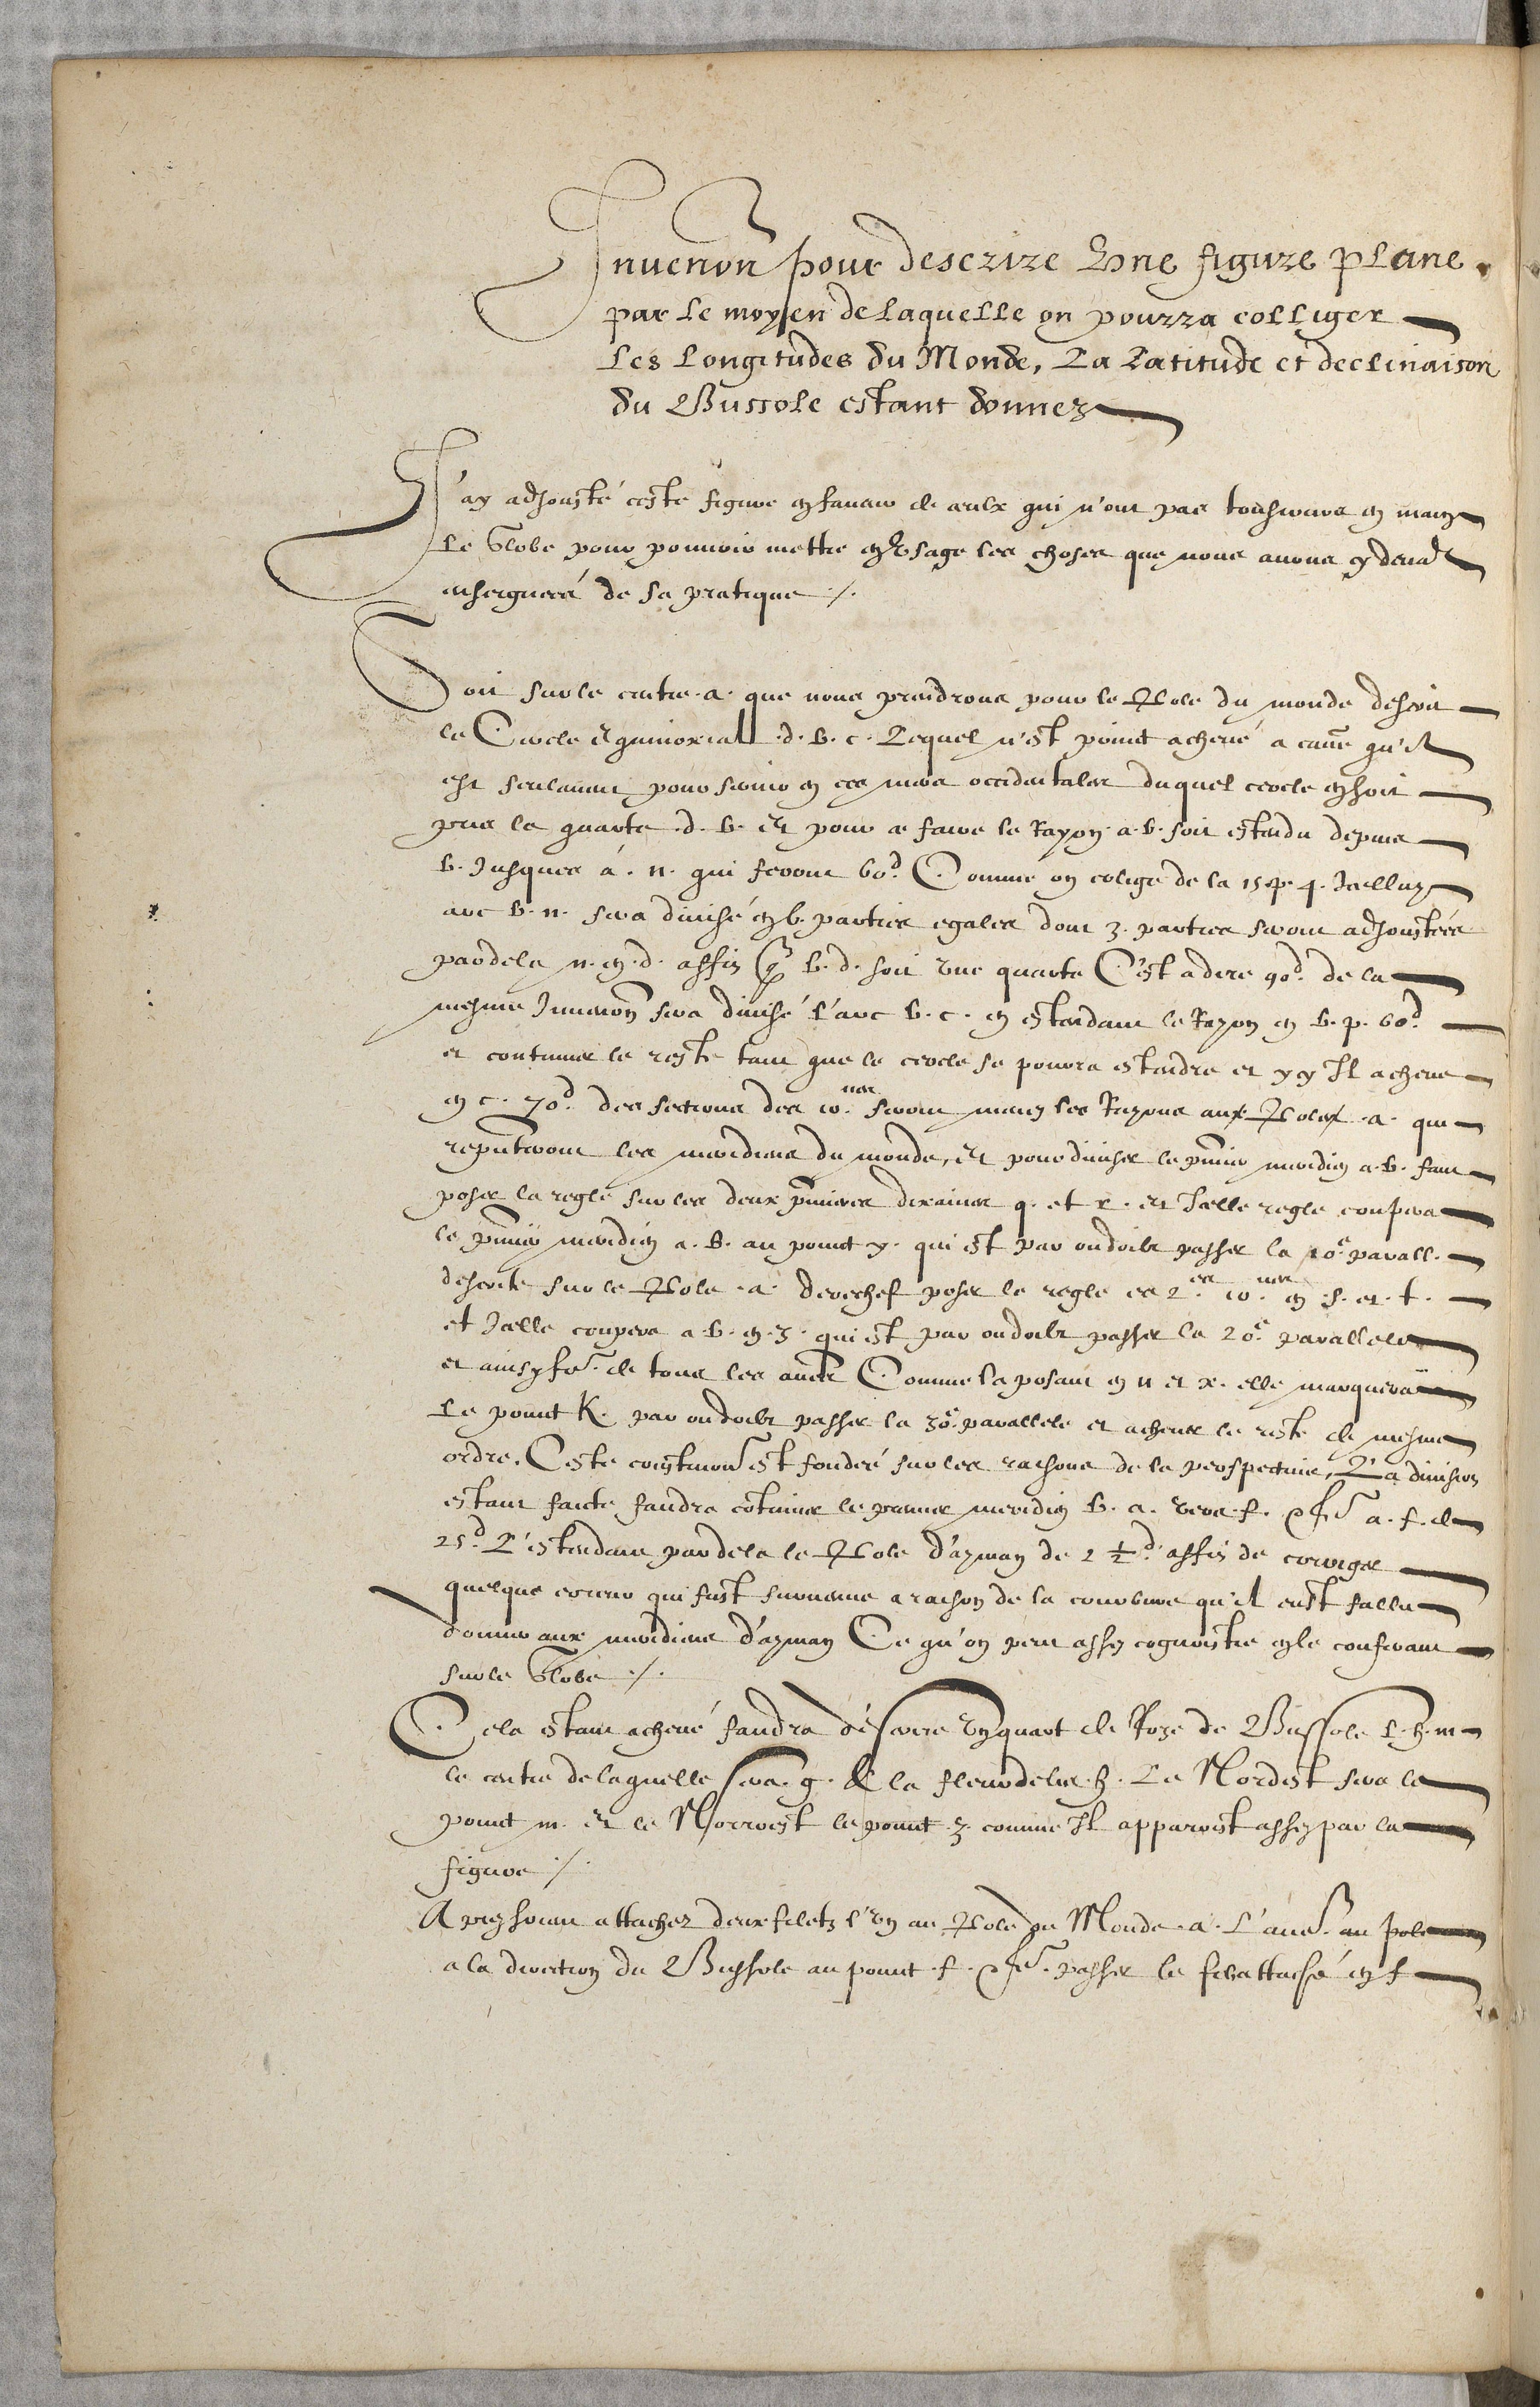 Inuenõn pour descrire Vne figure plane.
par le moyen de laquelle on pourra colliger
Les Longitudes du Monde, La Latitude et declinaison
du Bussole estant donnez
J'ay adjousté ceste figure en faueur de ceulx qui n'ont pas tousiours en main
Le Globe pour pouuoir mettre en Vsage les choses que nous auons cy deuãt
enseigneés de sa pratique /.
Soit sur le centre .a. que nous prendrons pour le Pole du monde descrit
le Circle Equinoxiall .d.b.c. Lequel n'est point acheué a cause qu'il
est seulement pour seruir en ces mers occidentales duquel cercle en soit
pris la quarte .d.b. Et pour ce faire le Rayon a.b. soit estendu depuis
b. Jusques á .n. qui feront 60d. Comme on colige de la 15 p. 4. Icelluy
arc b.n. sera diuisé en 6. parties egales dont 3. parties seront adjousteés
par dela n. en .d. affin q̃ b.d. soit vne quarte C'est a dire 90d. de la
mesme Inuenõn sera diuisé l'arc b.c. en estendant le Rayon en b.p. 60d.
et continuer le reste tant que le cercle se pourra estendre et icy Il acheue
en c. 70d. des sections des 10.nes seront menez les Rayons aux Poles .a. qui
repñteront les meridiens du monde, Et pour diuiser le p̃mier meridien a.b. faut
poser la regle sur les deux p̃mieres dixaines q. et r. et Icelle regle coupera
le p̃mier meridien a.b. au point y. qui est par ou doibt passer la 10e. parall.
descrite sur le Pole .a. derechef poser la regle es 2.es 10.nes en .s. et .t.
et Icelle coupera a.b. en .z. qui est par ou doibt passer la 20e. parallele
et ainsy fr̃e. de tous les aũes Comme la posant en u et x. elle marquera
Le point K. par ou doibt passer la 30e. parallele et acheuer le reste de mesme
ordre. Ceste constructiõ est fondeé sur les raisons de la perspectiue, La diuision
estant faicte faudra cõtinuer le premier meridien b.a. vers .f. a.f. de
25d. L'estendant par dela le Pole d'aymant de 2 1/2 d affin de corriger
quelque erreur qui fust suruenue a raison de la courbure qu'il eust fallu
donner aux meridiens d'aymant Ce qu'on peut assez cognoistre en le conferant
sur le Globe /.
Cela estant acheué faudra déscrire Vn quart de Roze de Bussole l.h.m
le centre de laquelle sera .g. & la fleur de lis .h. Le Nordest sera le
point m. Et le Norroest le point .z. comme Il apparoist assez par la
figure /.
Apres soient attachez deux filetz l'Vn au Pole du Monde .a. L'aũe. au pole
a la direction du Bussole au point .f. passer le fil attaché en f